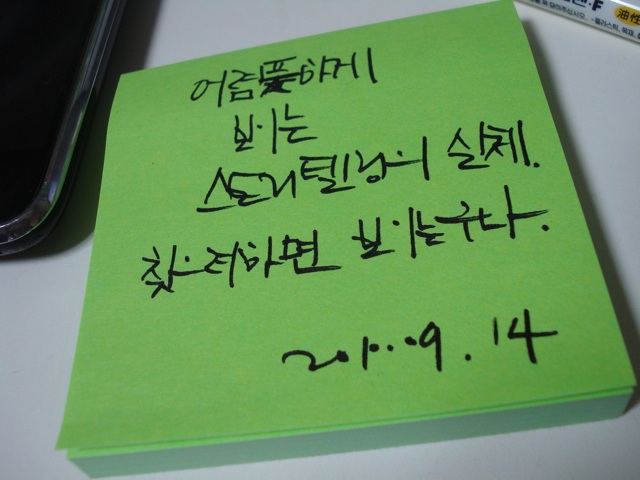 어렴풋하게
보이는
스토리텔링의 실체.
찾으려하면 보이는구나.
2010.. 09. 14
油性